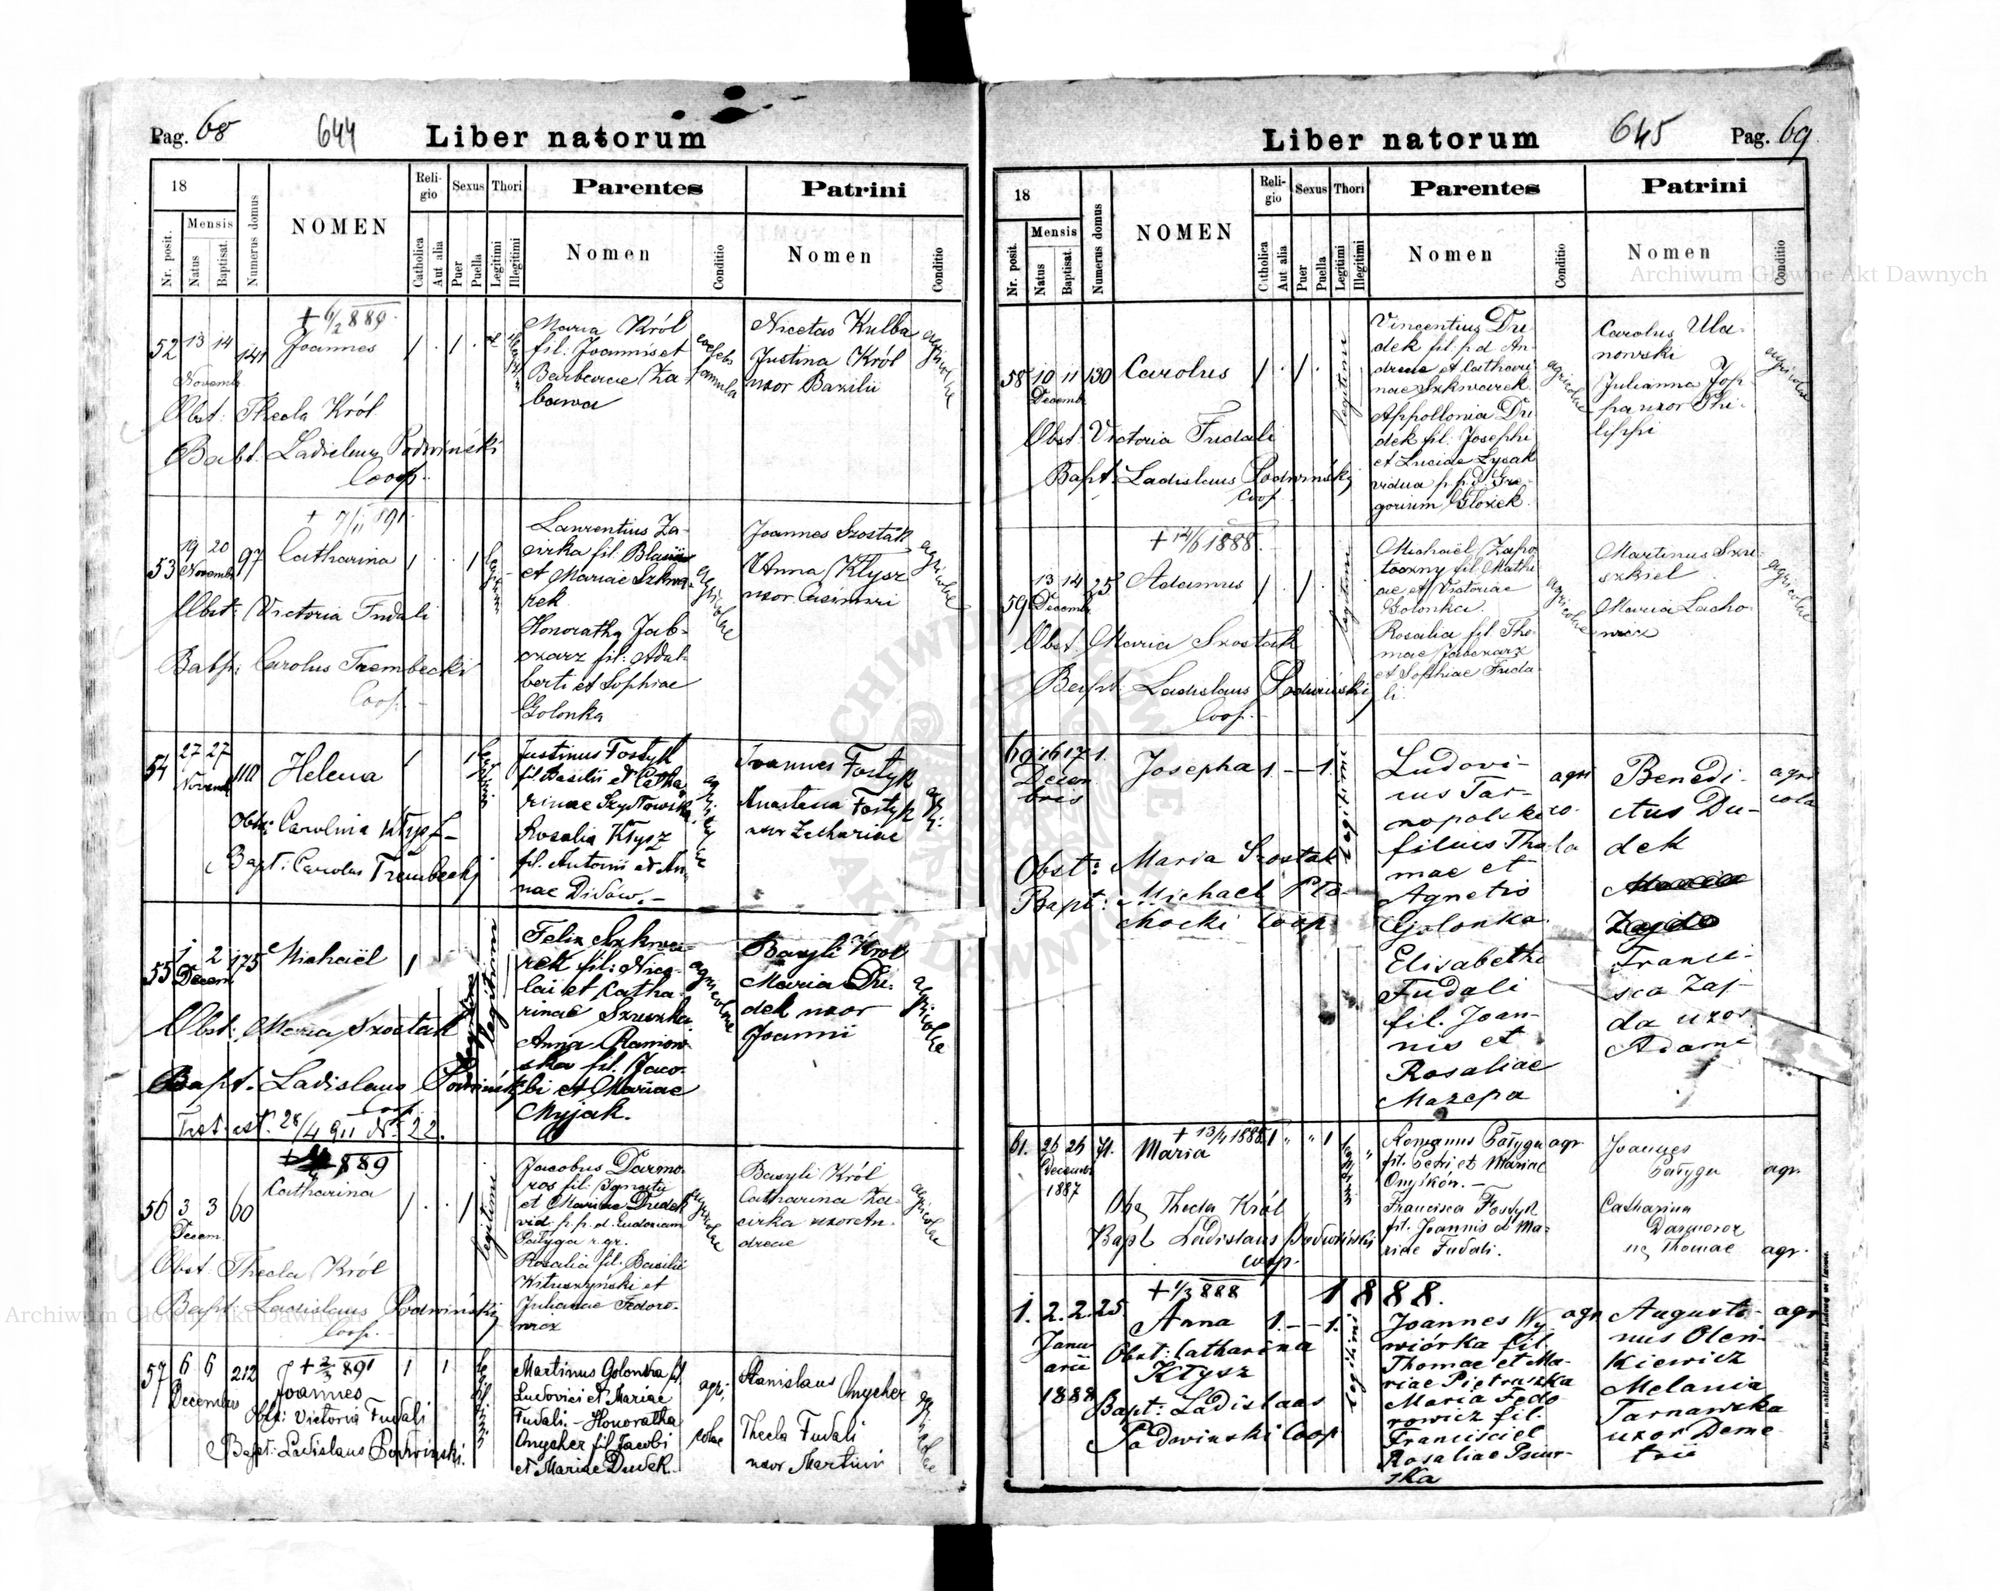 Pag. 68
644
Liber natorum
18
Nr. posit.
Mensis
Natus
Baptisat.
Numerus domus
NOMEN
Religio
Catholica
Aut alia
Sexus
Puer
Puella
Thori
Legitimi
Illegitimi
Parentes
Nomen
Conditio
Patrini
Nomen
Conditio
52
13 14
Novemb
141
+ 6/2 889.
Joannes
Obst: Thecla Król
Bapt. Ladislaus Podwiński
Coop.
Maria Król
fil: Joannis et
Barbarae Za
bawa
Nicetas Kulba
Justina Król
uxor Bazilii
agricolae
53
19 20
Novemb
97
+ 7/II 891.
Catharina
Obst: Victoria Fudali
Bapt: Carolus Trembecki
Coop.
Laurentius Za-
cirka fil. Blasii
et Mariae Szkwa-
rek
Honoratha Jab-
czarz fil: Adal-
berti et Sophiae
Golonka
agricolae
Joannes Szostak
Anna Kłysz
uxor Casimiri
agricolae
54
27 27
Novemb
110
Helena
Obst: Carolina Kłysz
Bapt: Carolus Trembecki
Justinus Fostyk
fil. Basilii et Catha
rinae Szystowska
Rosalia Kłysz
fil. Antonii et An
nae Didów.-
Joannes Fostyk
Anastasia Fostyk
uxor Zachariae
55
1 2
Decem
175
Michaël
Obst: Maria Szostak
Bapt. Ladislaus Podwiński
Coop.
Test. est. 28/4 911 Nr. 22.
legitimi
Felix Szkwa-
rek fil: Nico-
lai et Catha-
rinae Szuszka.
Anna Ramow-
ska fil. Jaco-
bi et Mariae
Myjak.
agricolae
Basyli Król
Maria Du-
dek uxor
Joannii
agricolae
56
3 3
Decem.
60
889
Catharina
Obst. Thecla Król
Bapt: Ladislaus Podwiński
Coop.
legitimi
Jacobus Darmo-
ros fil: Ignatii
et Mariae Dudek
vid. p. p. d. Eudoxiam
Patyga r. gr.
Rosalia fil. Basilii
Kituszyński et
Julianae Fedoro-
wicz
agricolae
Basyli Król
Catharina Za-
cirka uxor An-
dreae
agricolae
57
6 6
Decembris
212
+ 2/3 891
Joannes
Obst: Victoria Fudali
Bapt: Ladislaus Podwiński.
Martinus Golonka fil
Ludovici et Mariae
Fudali.- Honoratha
Onycher fil Jacobi
et Mariae Dudek.
agri,
colae
Stanislaus Onycher
Thecla Fudali
uxor Martini
agricolae
Liber natorum
645
Pag. 69
18
Nr. posit.
Mensis
Natus
Baptisat.
Numerus domus
NOMEN
Religio
Catholica
Aut alia
Sexus
Puer
Puella
Thori
Legitimi
Illegitimi
Parentes
Nomen
Conditio
Patrini
Nomen
Conditio
58
10 11
Decemb
130
Carolus
Obst. Victoria Fudali
Bapt: Ladislaus Podwiński
Coop
legitimi
Vincentius Du
dek fil. p.d. An-
dreae et Cathari
nae Szkwarek.
Appollonia Du
dek fil. Josephi
et Luciae Łysak
vidua p. p. d. Gre-
gorium Glozek.
agricolae
Carolus Ula-
nowski
Julianna Jop-
pa uxor Phi-
lippi
agricolae
59
13 14
Decemb
25
+ 14/6 1888.
Adamus
Obst. Maria Szostak
Bapt: Ladislaus Podwiński
Coop.
legitimi
Michaël Zapo
toczny fil. Mathi
ae et Victoriae
Golonka.
Rosalia fil Tho-
mae Jabczarz
et Sophiae Fuda-
li.
agricolae
Martinus Szu-
szkiel
Maria Lacho-
wicz
agricolae
60
16 17
Decem
bris
1.
Josepha
Obst: Maria Szostak
Bapt: Michael Pło-
chocki Coop
legitimi
Ludovi-
cus Tar-
nopolski
filius Tho
mae et
Agnetis
Golonka.
Elisabetha
Fudali
fil. Joan-
nis et
Rosaliae
Mazepa
agri
co-
la
Benedi-
ctus Du-
dek
Franci-
sca Zaj-
da uxor
Adami
agri
cola
61.
26 26
Decemb.
1887
71.
+ 13/4 1888
Maria
Obs. Thecla Król
Bapt Ladislaus Podwiński
coop.
Romanus Patyga
fil. Petri et Mariae
Onyśków.-
Francisca Fostyk
fil. Joannis et Ma-
riae Fudali.
agr.
Joannes
Patyga
Catharina
Darmoroz
ux Thomae
agr.
agr.
1888.
1.
2. 2.
Janu
arii
1888
25.
+ 1/3 888
Anna
Obst: Catharina
Kłysz
Bapt: Ladislaus
Podwinski Coop
legitimi
Joannes Wy
wiórka fil.
Thomae et Ma-
riae Pietruszka
Maria Fedo
rowicz fil.
Francisci et
Rosaliae Pscur-
ska
agr
Augusti-
nus Olen-
kiewicz
Melania
Tarnawska
uxor Deme-
trii
agr
Archiwum Główne Akt Dawnych
Archiwum Główne Akt Dawnych